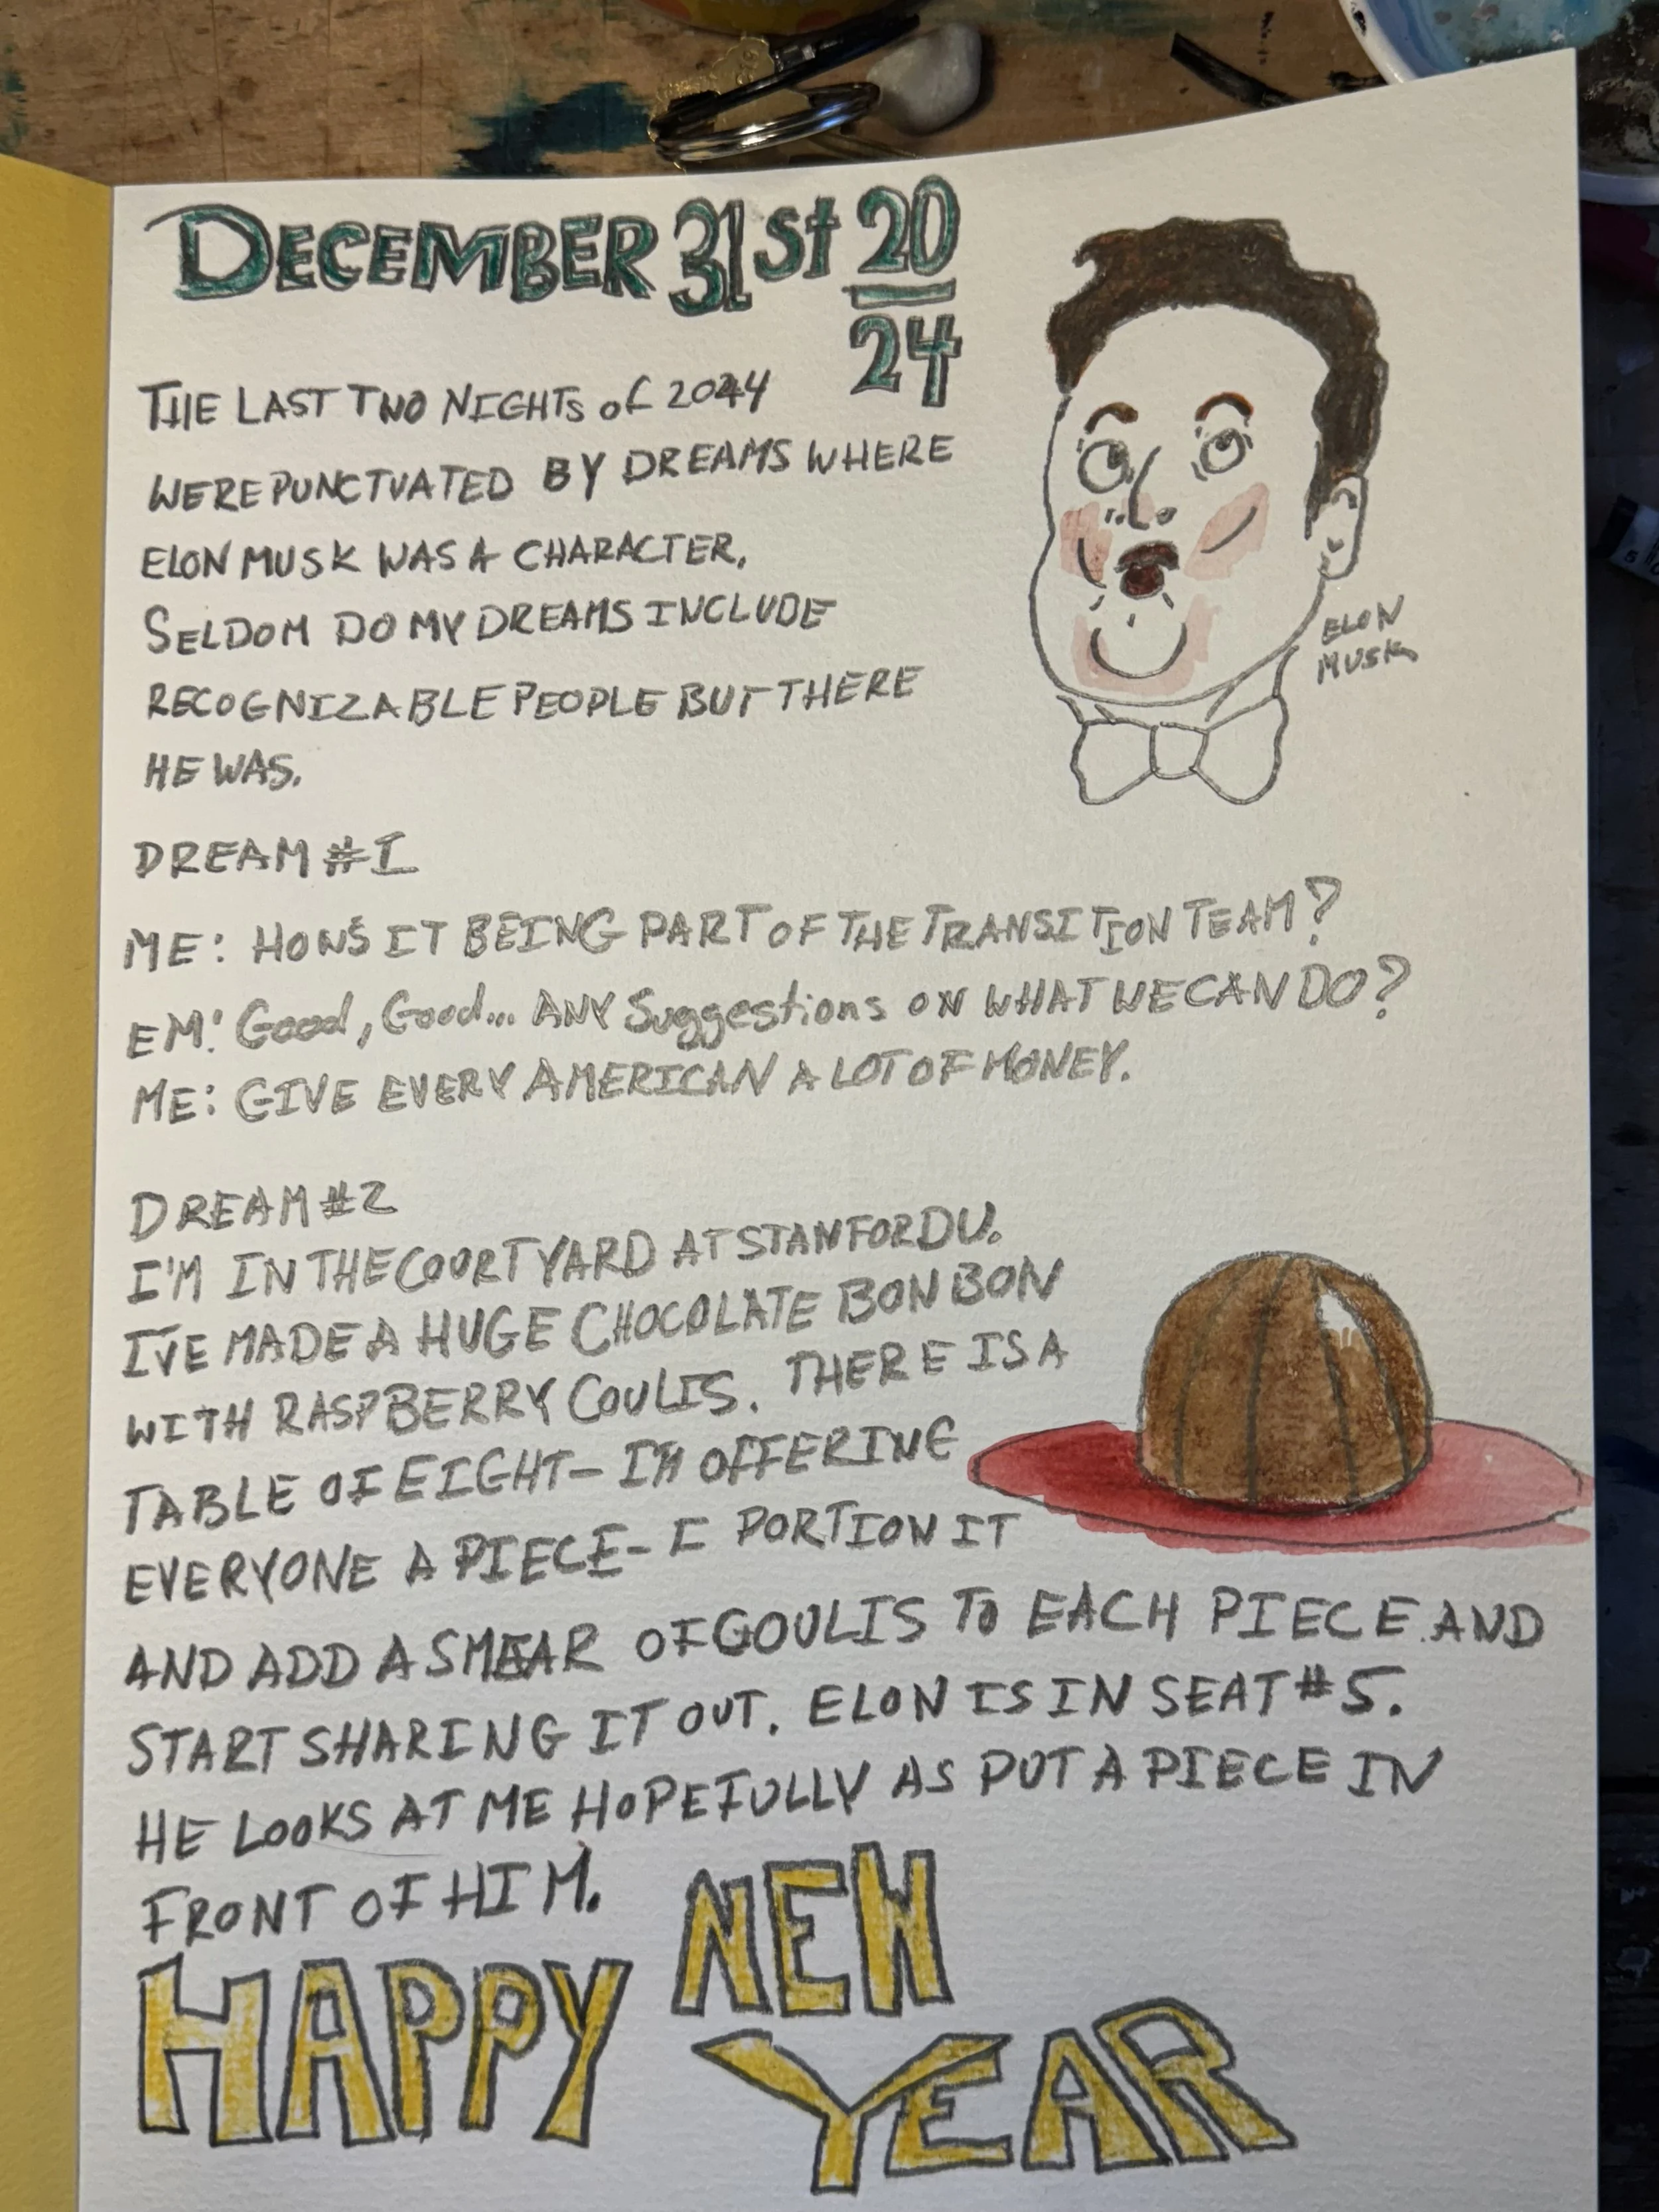 DECEMBER 31st 20
24
THE LAST TWO NIGHTS of 2024
WERE PUNCTUATED BY DREAMS WHERE
ELON MUSK WAS A CHARACTER.
SELDOM DO MY DREAMS INCLUDE
RECOGNIZABLE PEOPLE BUT THERE
HE WAS.
ELON
MUSK
DREAM #1
ME: HOW'S IT BEING PART OF THE TRANSITION TEAM?
EM: Good, Good... ANY Suggestions ON WHAT WE CAN DO?
ME: GIVE EVERY AMERICAN A LOT OF MONEY.
DREAM #2
I'M IN THE COURTYARD AT STANFORD U.
I'VE MADE A HUGE CHOCOLATE BON BON
WITH RASPBERRY COULIS. THERE IS A
TABLE OF EIGHT- I'M OFFERING
EVERYONE A PIECE- I PORTION IT
AND ADD A SMEAR OF COULIS TO EACH PIECE AND
START SHARING IT OUT. ELON IS IN SEAT #5.
HE LOOKS AT ME HOPEFULLY AS PUT A PIECE IN
FRONT OF HIM.
HAPPY NEW
YEAR